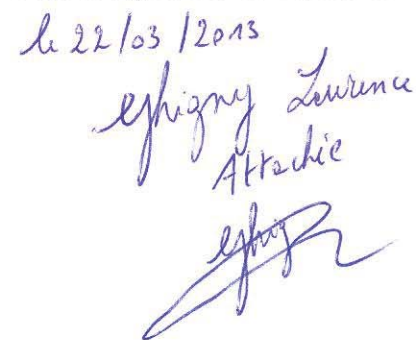 le 22/03/2013
Ghigny Laurence
Attachée